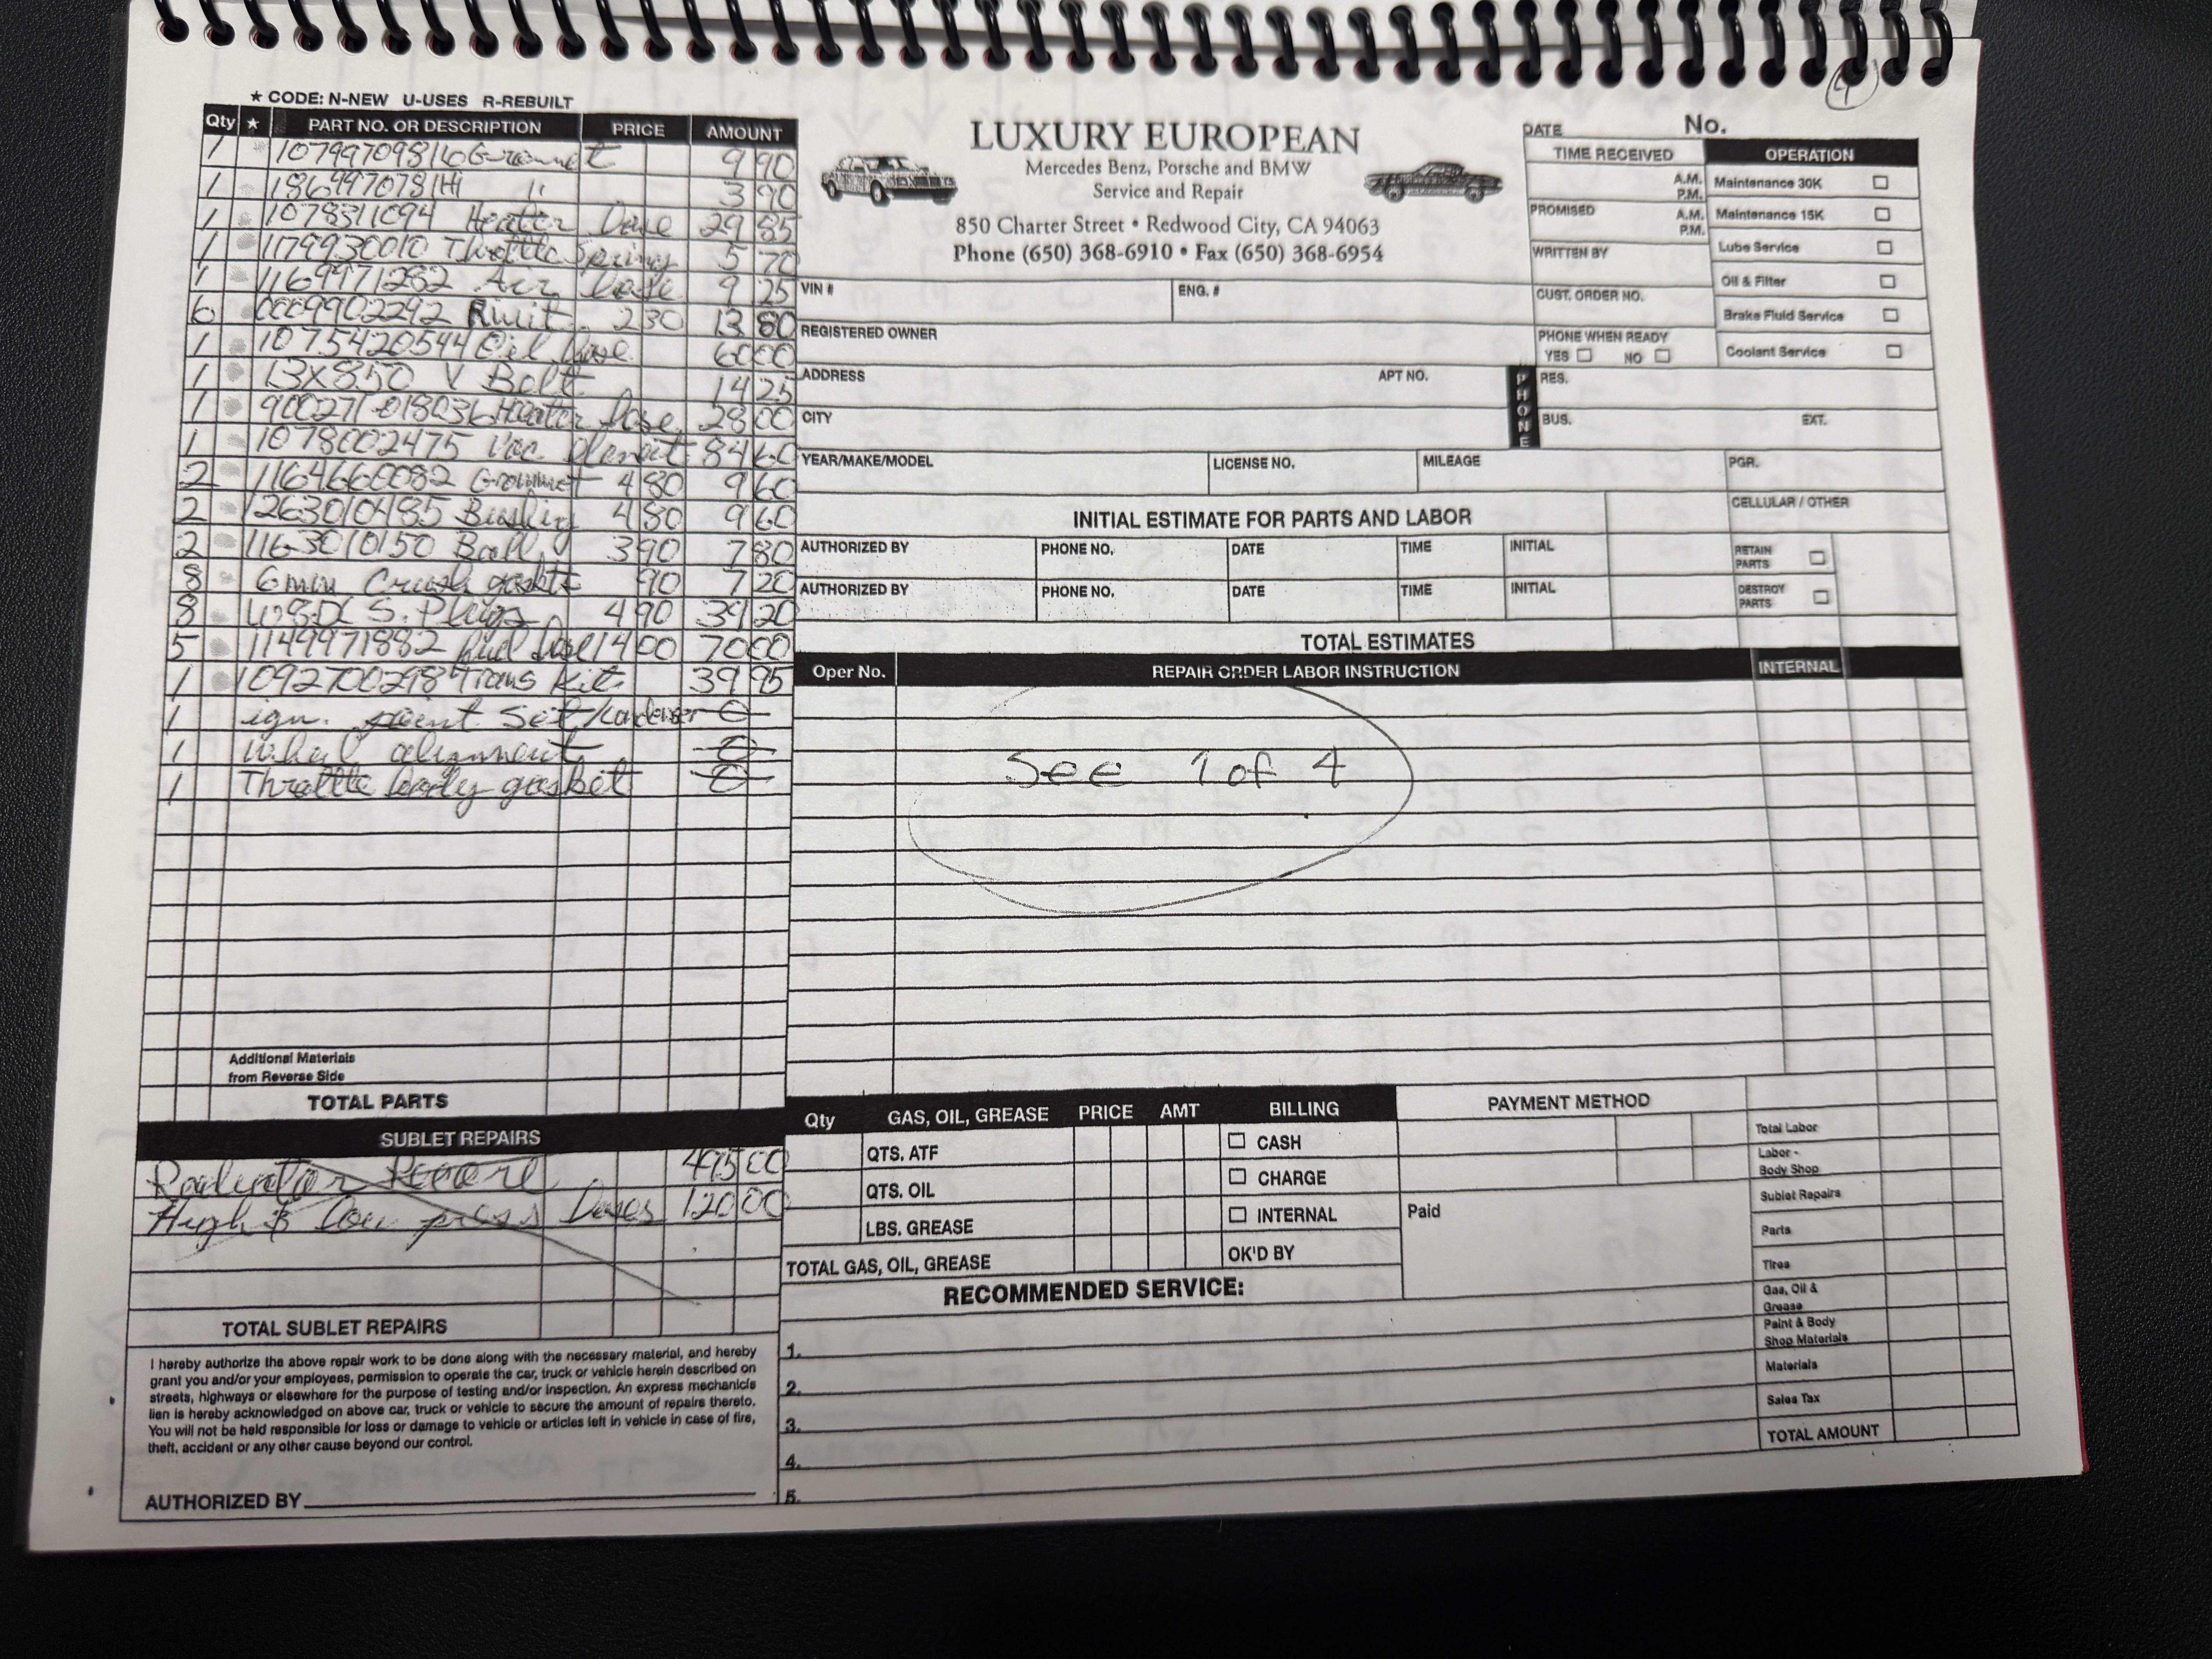 4
★ CODE: N-NEW U-USES R-REBUILT
Qty ★ PART NO. OR DESCRIPTION PRICE AMOUNT
1 Grommet 9 90
1 " 3 90
1 1078311094 Heater Hose 29 85
1 1179930010 Throttle Spring 5 70
1 1169971282 Air 9 25
6 0009902292 2 30 13 80
1 1075420544 Oil 60 00
1 13X850 V Belt 14 25
1 Heater Hose 28 00
1 1078002475 Vac. 84 60
2 1164660082 Grommet 4 80 9 60
2 1263010485 Bushing 4 80 9 60
2 1163010150 Ball 3 90 7 80
8 6mm Crush gaskts 90 7 20
8 S. Plugs 4 90 39 20
5 1149971882 14 00 70 00
1 1092700298 Trans Kit 39 95
1 ign. point Set/Condenser 0
1 Wheel alignment 0
1 Throttle body gasket 0
Additional Materials
from Reverse Side
TOTAL PARTS
SUBLET REPAIRS
Radiator 495 00
High & low press 120 00
TOTAL SUBLET REPAIRS
I hereby authorize the above repair work to be done along with the necessary material, and hereby
grant you and/or your employees, permission to operate the car, truck or vehicle herein described on
streets, highways or elsewhere for the purpose of testing and/or inspection. An express mechanic's
lien is hereby acknowledged on above car, truck or vehicle to secure the amount of repairs thereto.
You will not be held responsible for loss or damage to vehicle or articles left in vehicle in case of fire,
theft, accident or any other cause beyond our control.
AUTHORIZED BY
LUXURY EUROPEAN
Mercedes Benz, Porsche and BMW
Service and Repair
850 Charter Street • Redwood City, CA 94063
Phone (650) 368-6910 • Fax (650) 368-6954
DATE No.
TIME RECEIVED
A.M.
P.M.
PROMISED A.M.
P.M.
WRITTEN BY
CUST. ORDER NO.
PHONE WHEN READY
YES NO
OPERATION
Maintenance 30K
Maintenance 15K
Lube Service
Oil & Filter
Brake Fluid Service
Coolant Service
VIN # ENG. #
REGISTERED OWNER
ADDRESS APT NO. PHONE RES.
CITY BUS. EXT.
YEAR/MAKE/MODEL LICENSE NO. MILEAGE PGR.
INITIAL ESTIMATE FOR PARTS AND LABOR CELLULAR / OTHER
AUTHORIZED BY PHONE NO. DATE TIME INITIAL RETAIN PARTS
AUTHORIZED BY PHONE NO. DATE TIME INITIAL DESTROY PARTS
TOTAL ESTIMATES
Oper No. REPAIR ORDER LABOR INSTRUCTION INTERNAL
See 1 of 4
Qty GAS, OIL, GREASE PRICE AMT BILLING PAYMENT METHOD
QTS. ATF CASH
QTS. OIL CHARGE
LBS. GREASE INTERNAL Paid
TOTAL GAS, OIL, GREASE OK'D BY
RECOMMENDED SERVICE:
1.
2.
3.
4.
5.
Total Labor
Labor -
Body Shop
Sublet Repairs
Parts
Tires
Gas, Oil &
Grease
Paint & Body
Shop Materials
Materials
Sales Tax
TOTAL AMOUNT